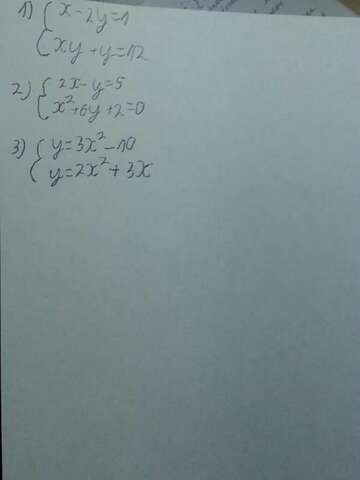 1) { x - 2y = 1
{ xy + y = 12
2) { 2x - y = 5
{ x² + 6y + 2 = 0
3) { y = 3x² - 10
{ y = 2x² + 3x